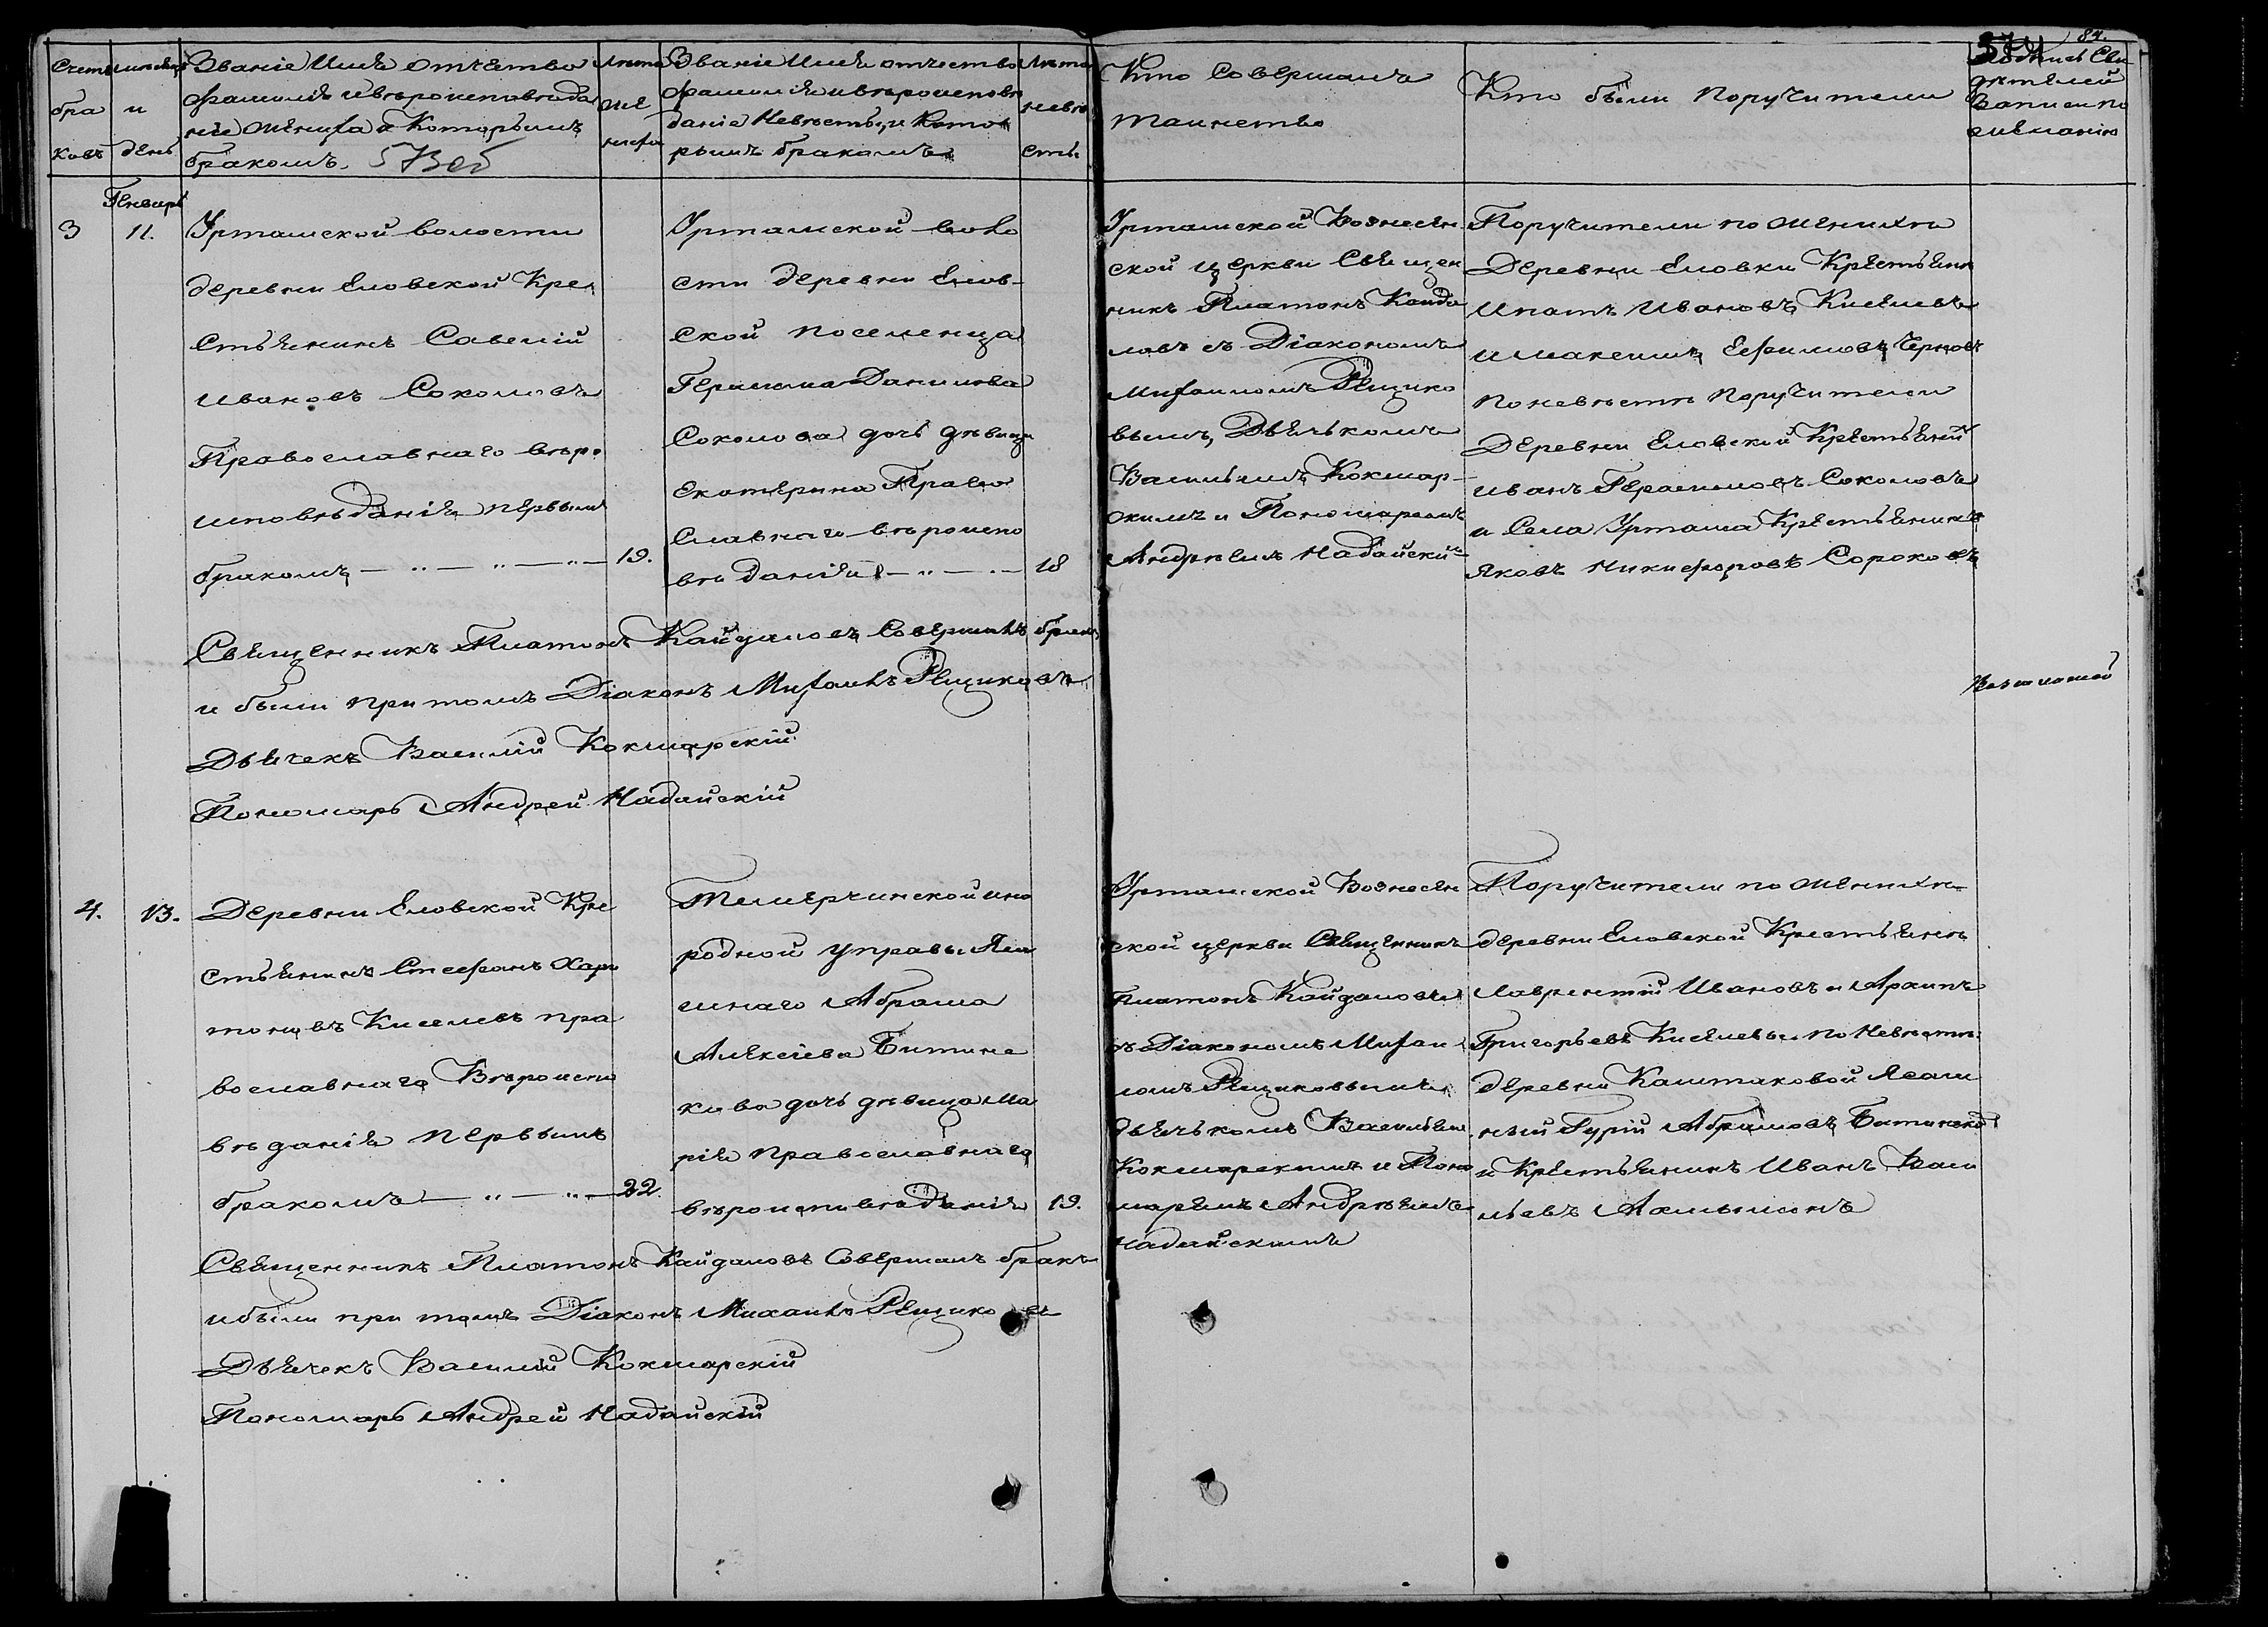 84.
Счетъ
бра
ковъ
мѣсяцъ
и
день
Званіе Имя Отчество
фамилія и вѣроисповѣда
ніе жениха и Которымъ
бракомъ.
Лѣта
же
ниха
Званіе Имя отчество
фамилія и вѣроиспов
даніе Невѣсты, и Кото
рымъ бракомъ
Лѣта
невѣ
сты
Кто Совершалъ
таинство
Кто были Поручители
Подпись Сви
дѣтелей
Записи по
желанію
Генварь
3
11.
Урта­мской волости
деревни Еловской Кре
стьянинъ Савелій
Ивановъ Соколовъ
Православнаго вѣро
исповѣданія первымъ
бракомъ — „ — „ — „ — 19.
Уртамской воло
сти деревни Елов-
ской поселенца
Герасима Данилова
Соколова дочь дѣвица
Екатерина Право
славнаго вѣроиспо
вѣданія — „ — „ — 18
Уртамской Вознесен
ской церкви Священ
никъ Платонъ Кайда
ловъ съ Діакономъ
Михаиломъ Рещико
вымъ, Дьячькомъ
Васильемъ Кокшар-
скимъ и Пономаремъ
Андрѣемъ Надайски
Поручители по женихѣ
Деревни Еловки Крестьяне
Ипатъ Ивановъ Киселевъ
и Максимъ Ефимовъ Черновъ
по невѣстѣ Поручители
Деревни Еловской Крестьянинъ
Иванъ Герасимовъ Соколовъ
и Села Уртама Крестьянинъ
Яковъ Никифоровъ Сороковъ
Священникъ Платонъ Кайдаловъ Совершалъ бракъ
и были при томъ Діаконъ Михаилъ Рещиковъ
Дьячекъ Василій Кокшарскій
Пономарь Андрей Надайскій
4.
13.
Деревни Еловской Кре
стьянинъ Стефанъ Хари
тоновъ Киселевъ пра
вославнаго Вѣроиспо
вѣданія первымъ
бракомъ — „ — „ — 22.
Темерчинской ино
родной управы Яса
шнаго Абрама
Алексіева Битине
кова дочь дѣвица Ма
рія православнаго
вѣроисповѣданія 19.
Уртамской Вознесен
ской церкви Священникъ
Платонъ Кайдаловъ
съ Діакономъ Михаи
ломъ Рещиковымъ
дьячькомъ Васильем
Кокшарскимъ и Поно
маремъ Андрѣемъ
Надайскимъ
Поручители по женихѣ
деревни Еловской Крестьяне
Лаврентій Ивановъ и Архипъ
Григорьевъ Киселевы по Невѣстѣ
деревни Каштаковой Ясаш
ный Гурій Абрамовъ Битинеко
и Крестьянинъ Иванъ Васи
льевъ
Священникъ Платонъ Кайдаловъ Совершалъ бракъ
и были при томъ Діаконъ Михаилъ Рещиковъ
Дьячекъ Василій Кокшарскій
Пономарь Андрей Надайскій